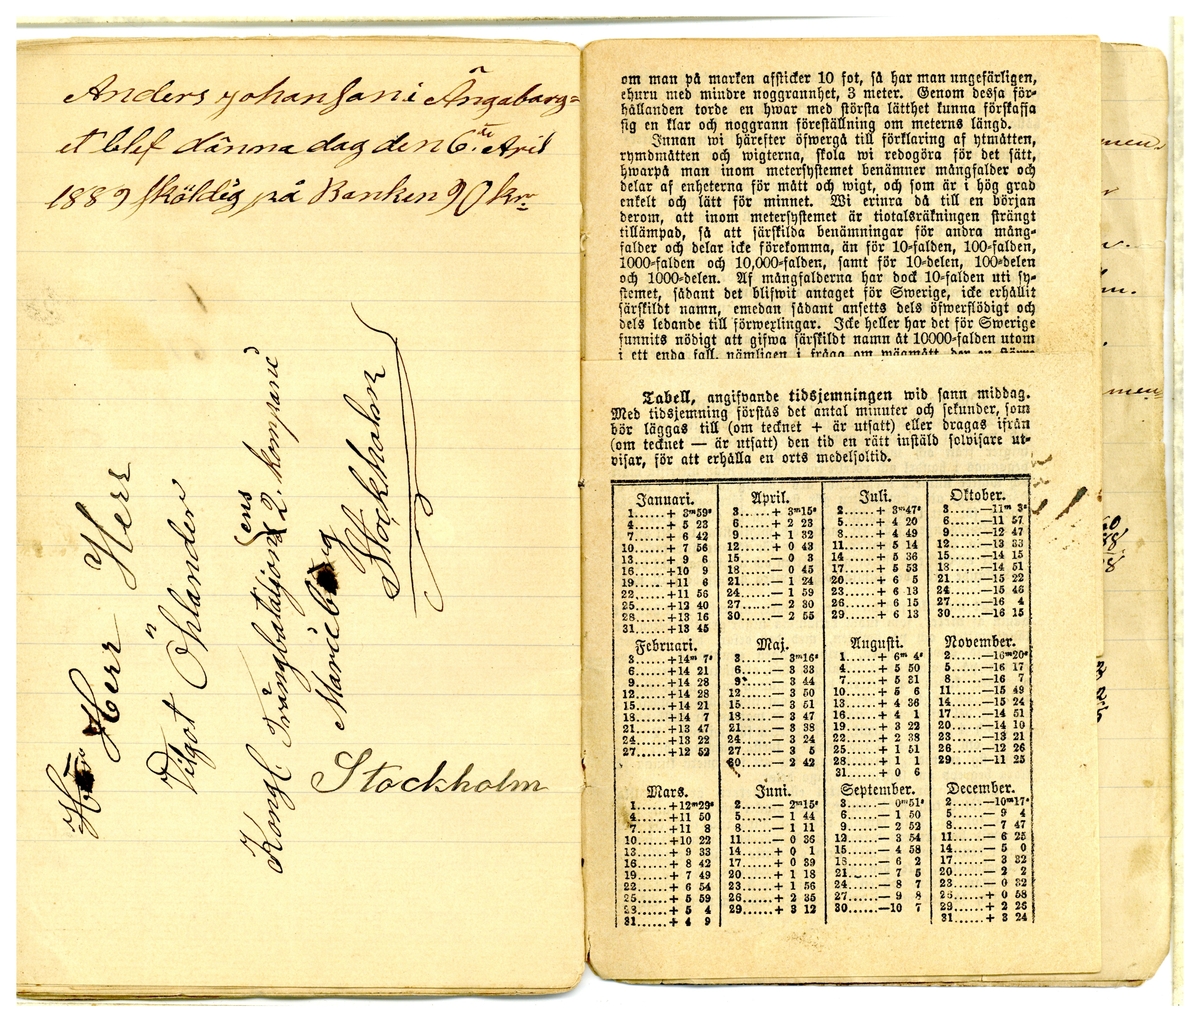 Anders Johansan i Ängabarg=
et blef dänna dag den 6te April
1889 sköldig på Banken 90 kr
Herr Herr
Vilgot Öhlander
Kongl Trängbataljonens 2. kompani
Marieberg
Stockholm
Stockholm
om man på marken afsticker 10 fot, så har man ungefärligen,
ehuru med mindre noggrannhet, 3 meter. Genom dessa för-
hållanden torde en hwar med största lätthet kunna förskaffa
sig en klar och noggrann föreställning om meterns längd.
Innan wi härefter öfwergå till förklaring af ytmåtten,
rymdmåtten och wigterna, skola wi redogöra för det sätt,
hwarpå man inom metersystemet benämner mångfalder och
delar af enheterna för mått och wigt, och som är i hög grad
enkelt och lätt för minnet. Wi erinra då till en början
derom, att inom metersystemet är tiotalsräkningen strängt
tillämpad, så att särskilda benämningar för andra mång-
falder och delar icke förekomma, än för 10-falden, 100-falden,
1000-falden och 10,000-falden, samt för 10-delen, 100-delen
och 1000-delen. Af mångfalderna har dock 10-falden uti sy-
stemet, sådant det blifwit antaget för Swerige, icke erhållit
särskildt namn, emedan sådant ansetts dels öfwerflödigt och
dels ledande till förwexlingar. Icke heller har det för Swerige
funnits nödigt att gifwa särskildt namn åt 10000-falden utom
i ett enda fall, nämligen i fråga om wägmått, der en större
Tabell, angifvande tidsjemningen wid sann middag.
Med tidsjemning förstås det antal minuter och sekunder, som
bör läggas till (om tecknet + är utsatt) eller dragas ifrån
(om tecknet — är utsatt) den tid en rätt inställd solvisare ut-
visar, för att erhålla en orts medelsoltid.
Januari.
1......+ 3m59s
4......+ 5 23
7......+ 6 42
10......+ 7 56
13......+ 9 6
16......+10 9
19......+11 6
22......+11 56
25......+12 40
28......+13 16
31......+13 45
Februari.
3......+14m 7s
6......+14 21
9......+14 28
12......+14 28
15......+14 21
18......+14 7
21......+13 47
24......+13 22
27......+12 52
Mars.
1......+12m29s
4......+11 50
7......+11 8
10......+10 22
13......+ 9 33
16......+ 8 42
19......+ 7 49
22......+ 6 54
25......+ 5 59
28......+ 5 4
31......+ 4 9
April.
3......+ 3m15s
6......+ 2 23
9......+ 1 32
12......+ 0 43
15......— 0 3
18......— 0 45
21......— 1 24
24......— 1 59
27......— 2 30
30......— 2 55
Maj.
3......— 3m16s
6......— 3 33
9......— 3 44
12......— 3 50
15......— 3 51
18......— 3 47
21......— 3 38
24......— 3 24
27......— 3 5
30......— 2 42
Juni.
2......— 2m15s
5......— 1 44
8......— 1 11
11......— 0 36
14......+ 0 1
17......+ 0 39
20......+ 1 18
23......+ 1 56
26......+ 2 35
29......+ 3 12
Juli.
2......+ 3m47s
5......+ 4 20
8......+ 4 49
11......+ 5 14
14......+ 5 36
17......+ 5 53
20......+ 6 5
23......+ 6 13
26......+ 6 15
29......+ 6 13
Augusti.
1......+ 6m 4s
4......+ 5 50
7......+ 5 31
10......+ 5 6
13......+ 4 36
16......+ 4 1
19......+ 3 22
22......+ 2 38
25......+ 1 51
28......+ 1 1
31......+ 0 6
September.
3......— 0m51s
6......— 1 50
9......— 2 52
12......— 3 54
15......— 4 58
18......— 6 2
21......— 7 5
24......— 8 7
27......— 9 8
30......—10 7
Oktober.
3......—11m 3s
6......—11 57
9......—12 47
12......—13 33
15......—14 15
18......—14 51
21......—15 22
24......—15 46
27......—16 4
30......—16 15
November.
2......—16m20s
5......—16 17
8......—16 7
11......—15 49
14......—15 24
17......—14 51
20......—14 10
23......—13 21
26......—12 26
29......—11 25
December.
2......—10m17s
5......— 9 4
8......— 7 47
11......— 6 25
14......— 5 0
17......— 3 32
20......— 2 2
23......— 0 32
26......+ 0 58
29......+ 2 26
31......+ 3 24